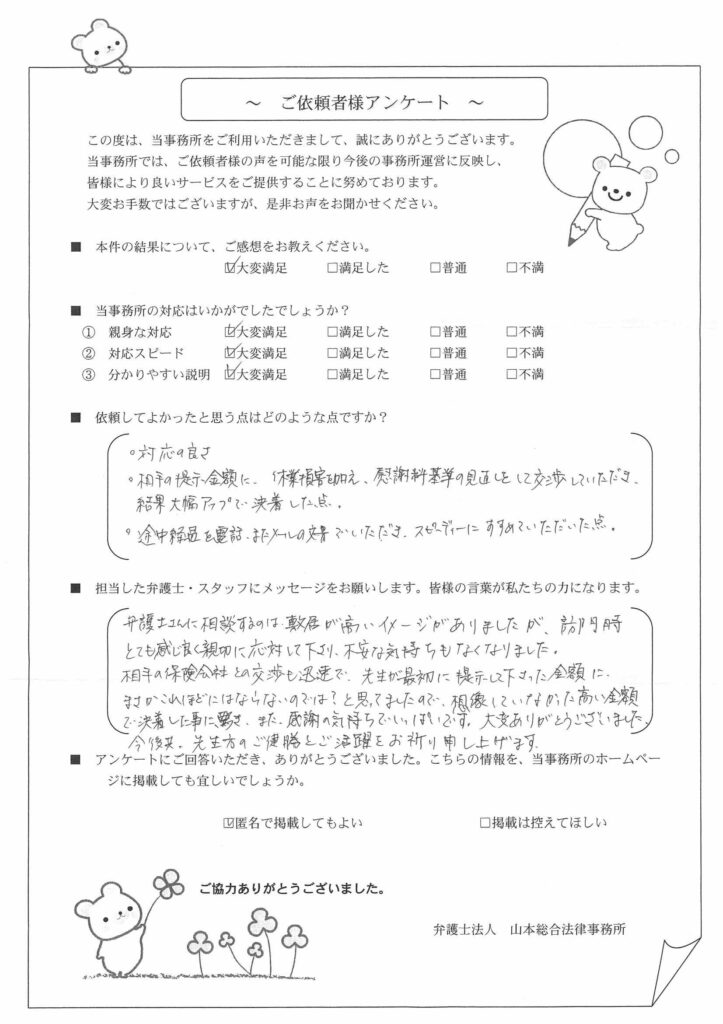 ～　ご依頼者様アンケート　～
この度は、当事務所をご利用いただきまして、誠にありがとうございます。
当事務所では、ご依頼者様の声を可能な限り今後の事務所運営に反映し、
皆様により良いサービスをご提供することに努めております。
大変お手数ではございますが、是非お声をお聞かせください。
■　本件の結果について、ご感想をお教えください。
☑大変満足　□満足した　□普通　□不満
■　当事務所の対応はいかがでしたでしょうか？
①　親身な対応　☑大変満足　□満足した　□普通　□不満
②　対応スピード　☑大変満足　□満足した　□普通　□不満
③　分かりやすい説明　☑大変満足　□満足した　□普通　□不満
■　依頼してよかったと思う点はどのような点ですか？
○対応の良さ
○相手の提示金額に、休業損害を加え、慰謝料基準の見直しをして交渉していただき、
結果大幅アップで決着した点。
○途中経過を電話、またメールの文書でいただき、スピーディーにすすめていただいた点。
■　担当した弁護士・スタッフにメッセージをお願いします。皆様の言葉が私たちの力になります。
弁護士さんに相談するのは敷居が高いイメージがありましたが、訪問時
とても感じ良く親切に応対して下さり、不安な気持ちもなくなりました。
相手の保険会社との交渉も迅速で、先生が最初に提示して下さった金額に、
まさかこれほどにはならないのでは？と思ってましたので、想像していなかった高い金額
で決着した事に驚き、また、感謝の気持ちでいっぱいです。大変ありがとうございました。
今後共、先生方のご健勝とご活躍をお祈り申し上げます。
■　アンケートにご回答いただき、ありがとうございました。こちらの情報を、当事務所のホームペー
ジに掲載しても宜しいでしょうか。
☑匿名で掲載してもよい　□掲載は控えてほしい
ご協力ありがとうございました。
弁護士法人　山本総合法律事務所